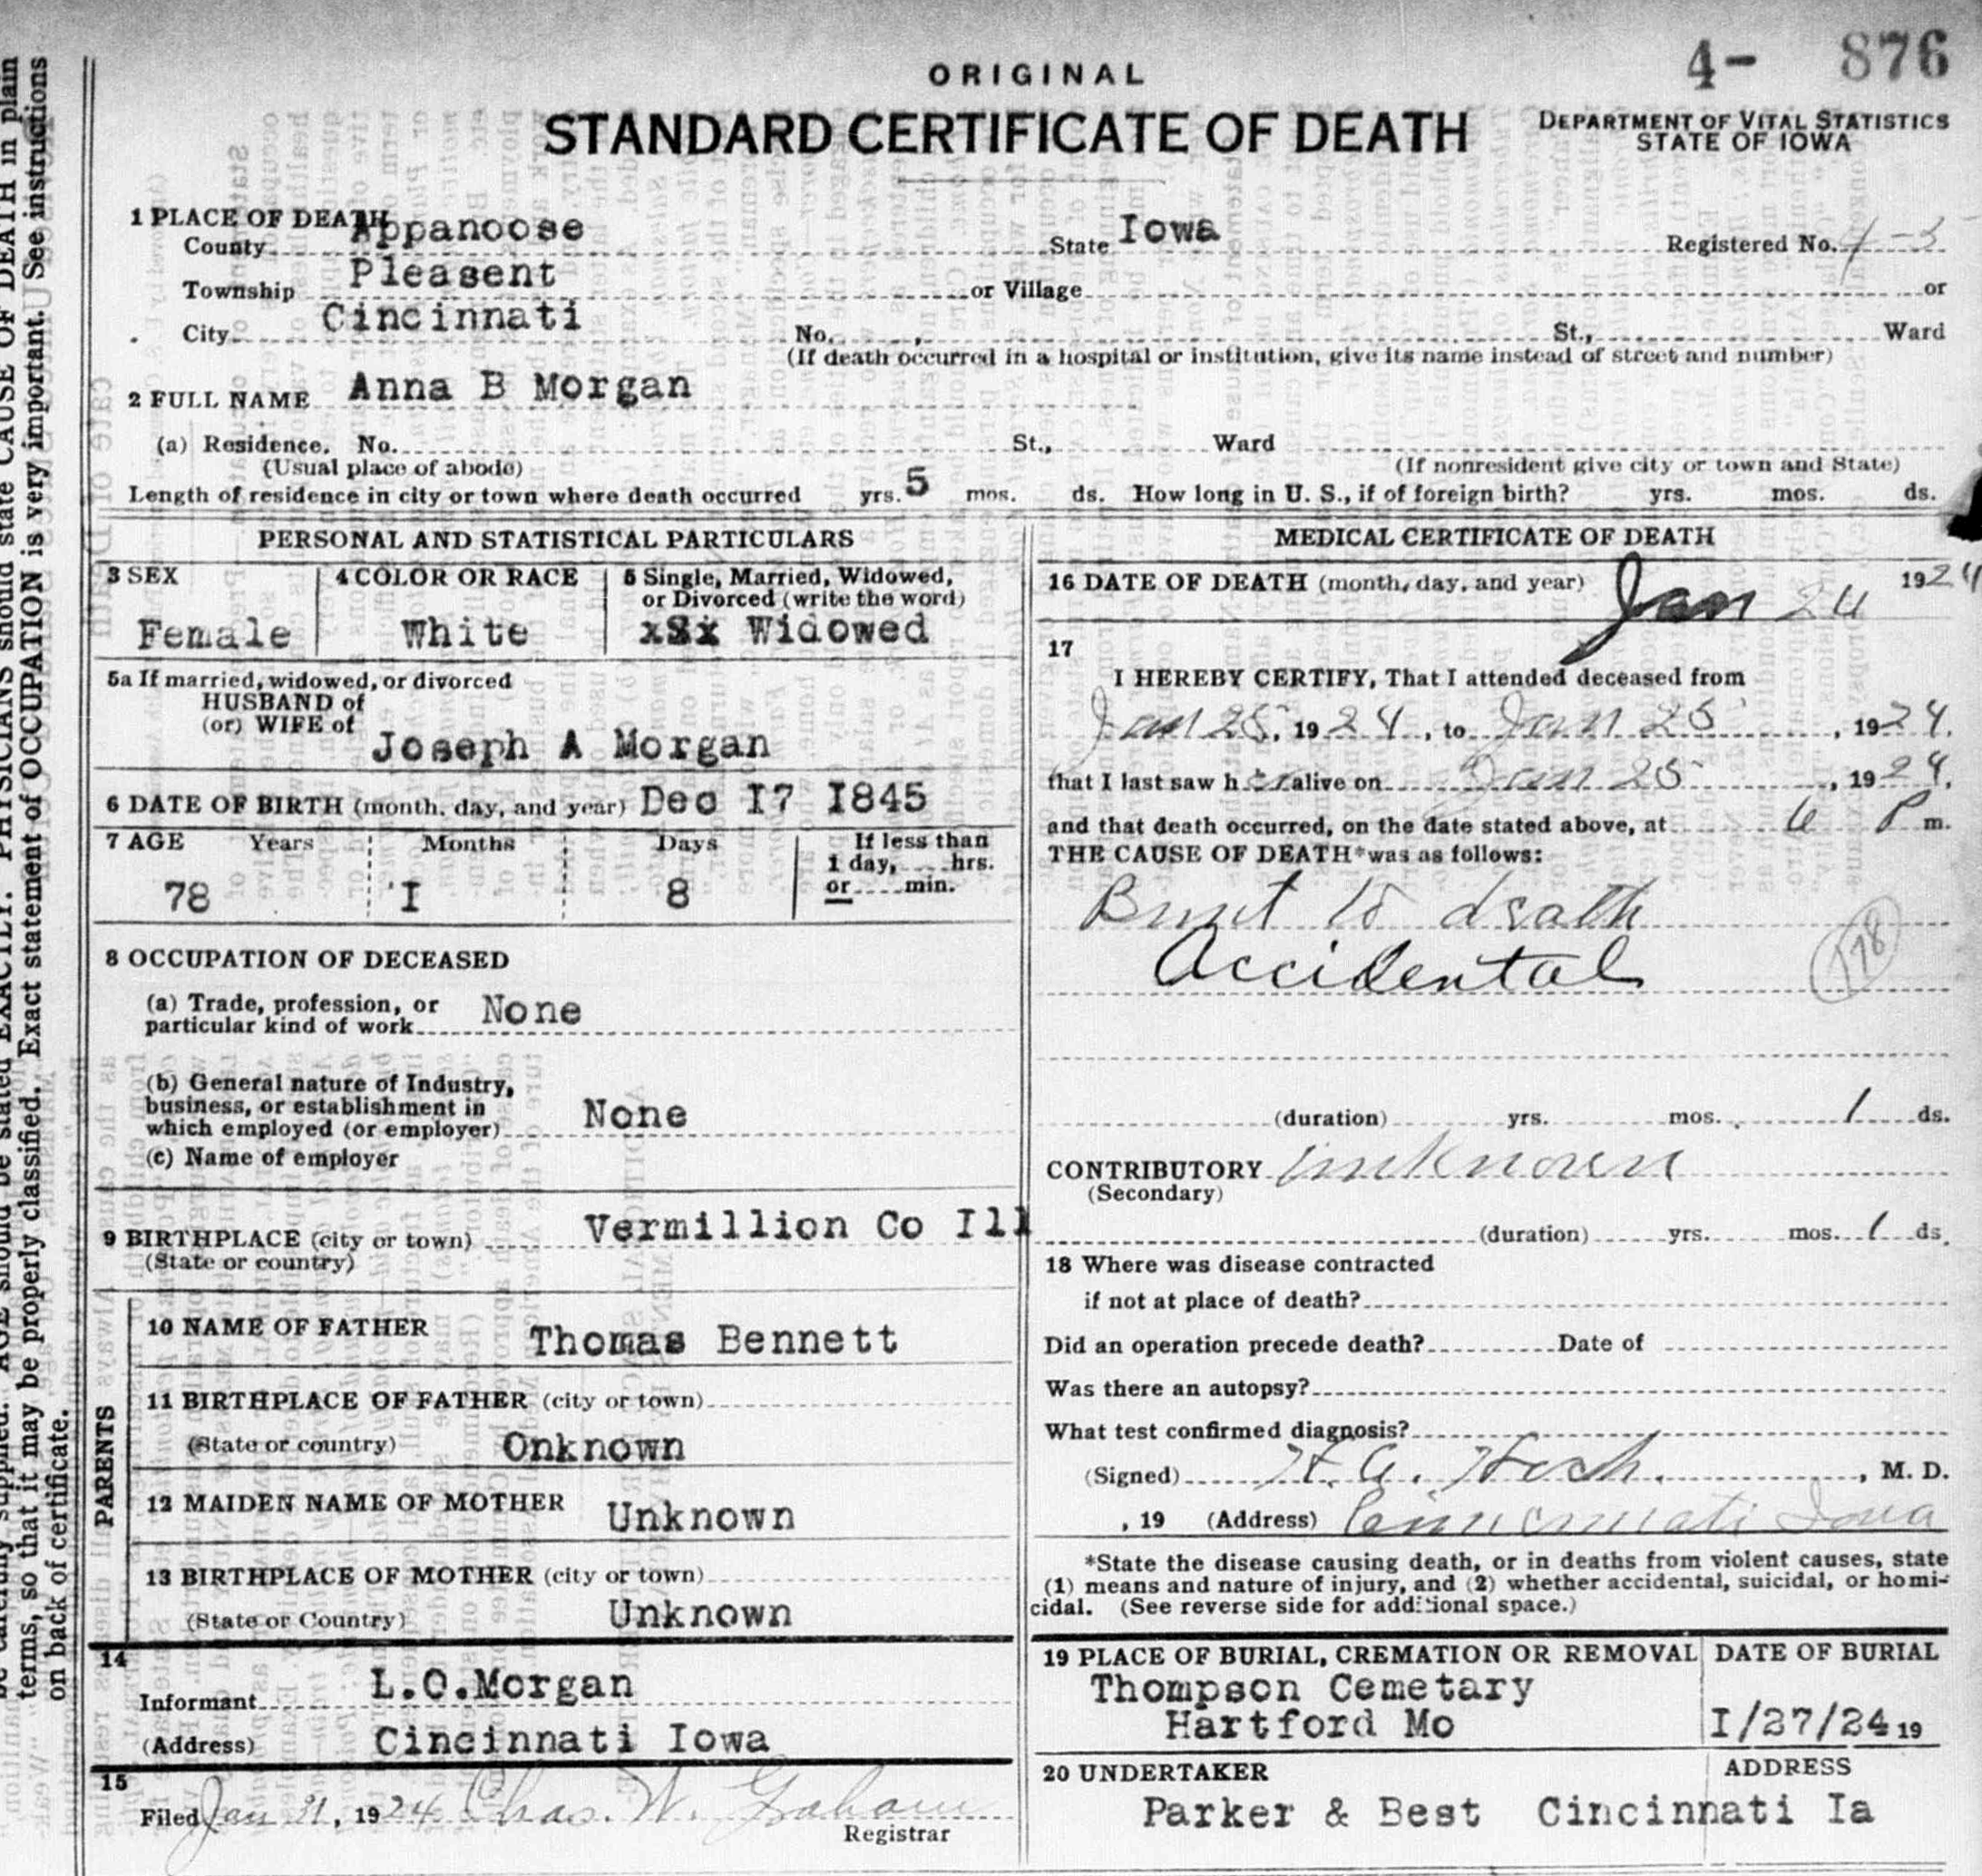 4- 876
ORIGINAL
STANDARD CERTIFICATE OF DEATH
DEPARTMENT OF VITAL STATISTICS
STATE OF IOWA
1 PLACE OF DEATH
County Appanoose State Iowa Registered No. 4-3
Township Pleasent or Village or
City Cincinnati No. , St., Ward
(If death occurred in a hospital or institution, give its name instead of street and number)
2 FULL NAME Anna B Morgan
(a) Residence. No. St., Ward
(Usual place of abode) (If nonresident give city or town and State)
Length of residence in city or town where death occurred yrs. 5 mos. ds. How long in U. S., if of foreign birth? yrs. mos. ds.
PERSONAL AND STATISTICAL PARTICULARS
3 SEX
Female
4 COLOR OR RACE
White
5 Single, Married, Widowed,
or Divorced (write the word)
xSx Widowed
5a If married, widowed, or divorced
HUSBAND of
(or) WIFE of
Joseph A Morgan
6 DATE OF BIRTH (month, day, and year) Dec I7 I845
7 AGE Years Months Days If less than
1 day, hrs.
78 'I 8 or min.
8 OCCUPATION OF DECEASED
(a) Trade, profession, or
particular kind of work None
(b) General nature of Industry,
business, or establishment in
which employed (or employer) None
(c) Name of employer
9 BIRTHPLACE (city or town) Vermillion Co Ill
(State or country)
PARENTS
10 NAME OF FATHER Thomas Bennett
11 BIRTHPLACE OF FATHER (city or town)
(State or country) Onknown
12 MAIDEN NAME OF MOTHER Unknown
13 BIRTHPLACE OF MOTHER (city or town)
(State or Country) Unknown
14
Informant L.O.Morgan
(Address) Cincinnati Iowa
15
Filed Jan 31, 1924 Chas. W. Graham
Registrar
MEDICAL CERTIFICATE OF DEATH
16 DATE OF DEATH (month, day, and year) Jan 24 1924
17
I HEREBY CERTIFY, That I attended deceased from
Jan 25, 1924, to Jan 25, 1924,
that I last saw her alive on Jan 25, 1924,
and that death occurred, on the date stated above, at 6 P m.
THE CAUSE OF DEATH* was as follows:
Burnt to death
Accidental
178
(duration) yrs. mos. 1 ds.
CONTRIBUTORY unknown
(Secondary)
(duration) yrs. mos. 1 ds.
18 Where was disease contracted
if not at place of death?
Did an operation precede death? Date of
Was there an autopsy?
What test confirmed diagnosis?
(Signed) H. A. , M. D.
, 19 (Address) Cincinnati Iowa
*State the disease causing death, or in deaths from violent causes, state
(1) means and nature of injury, and (2) whether accidental, suicidal, or homi-
cidal. (See reverse side for additional space.)
19 PLACE OF BURIAL, CREMATION OR REMOVAL
Thompson Cemetary
Hartford Mo
DATE OF BURIAL
I/27/24 19
20 UNDERTAKER ADDRESS
Parker & Best Cincinnati Ia
AGE should be stated EXACTLY. PHYSICIANS should state CAUSE OF DEATH in plain
terms, so that it may be properly classified. Exact statement of OCCUPATION is very important. See instructions
on back of certificate.